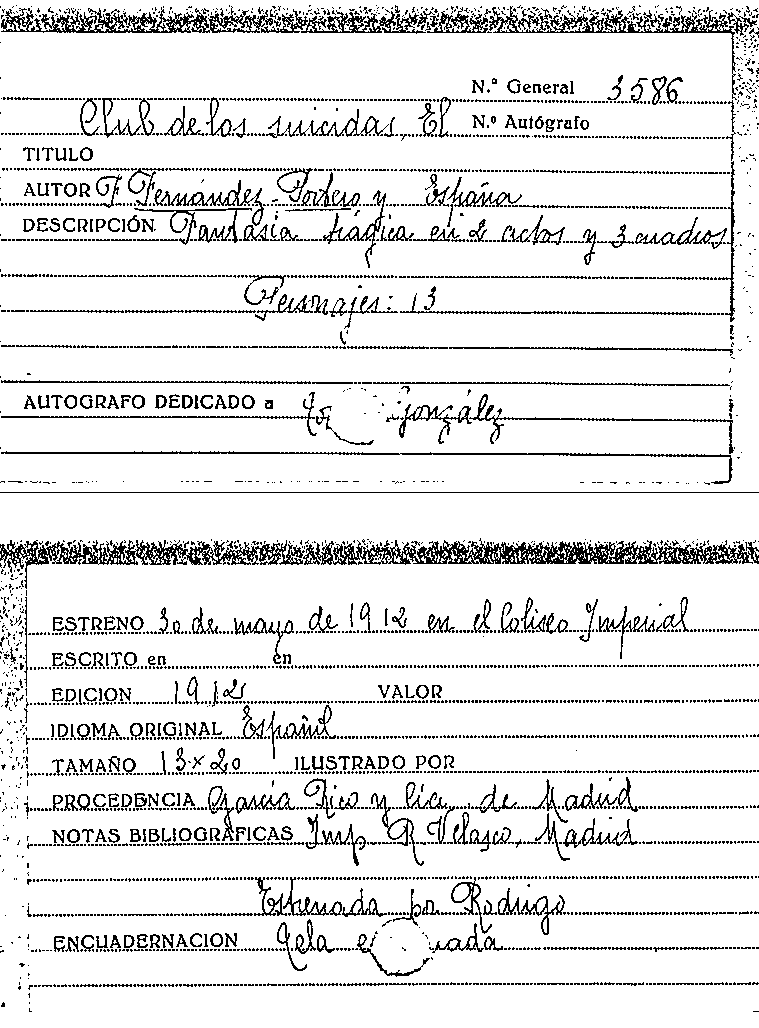 N.º General 3586
Club de los suicidas, El N.º Autógrafo
TITULO
AUTOR F. Fernández-Portero y España
DESCRIPCIÓN Fantasía trágica en 2 actos y 3 cuadros
Personajes: 13
AUTOGRAFO DEDICADO a González
ESTRENO 30 de mayo de 1912 en el Coliseo Imperial
ESCRITO en en
EDICION 1912 VALOR
IDIOMA ORIGINAL Español
TAMAÑO 13 x 20 ILUSTRADO POR
PROCEDENCIA García Rico y Cía, de Madrid
NOTAS BIBLIOGRAFICAS Imp R Velasco, Madrid
Estrenada por Rodrigo
ENCUADERNACION Tela